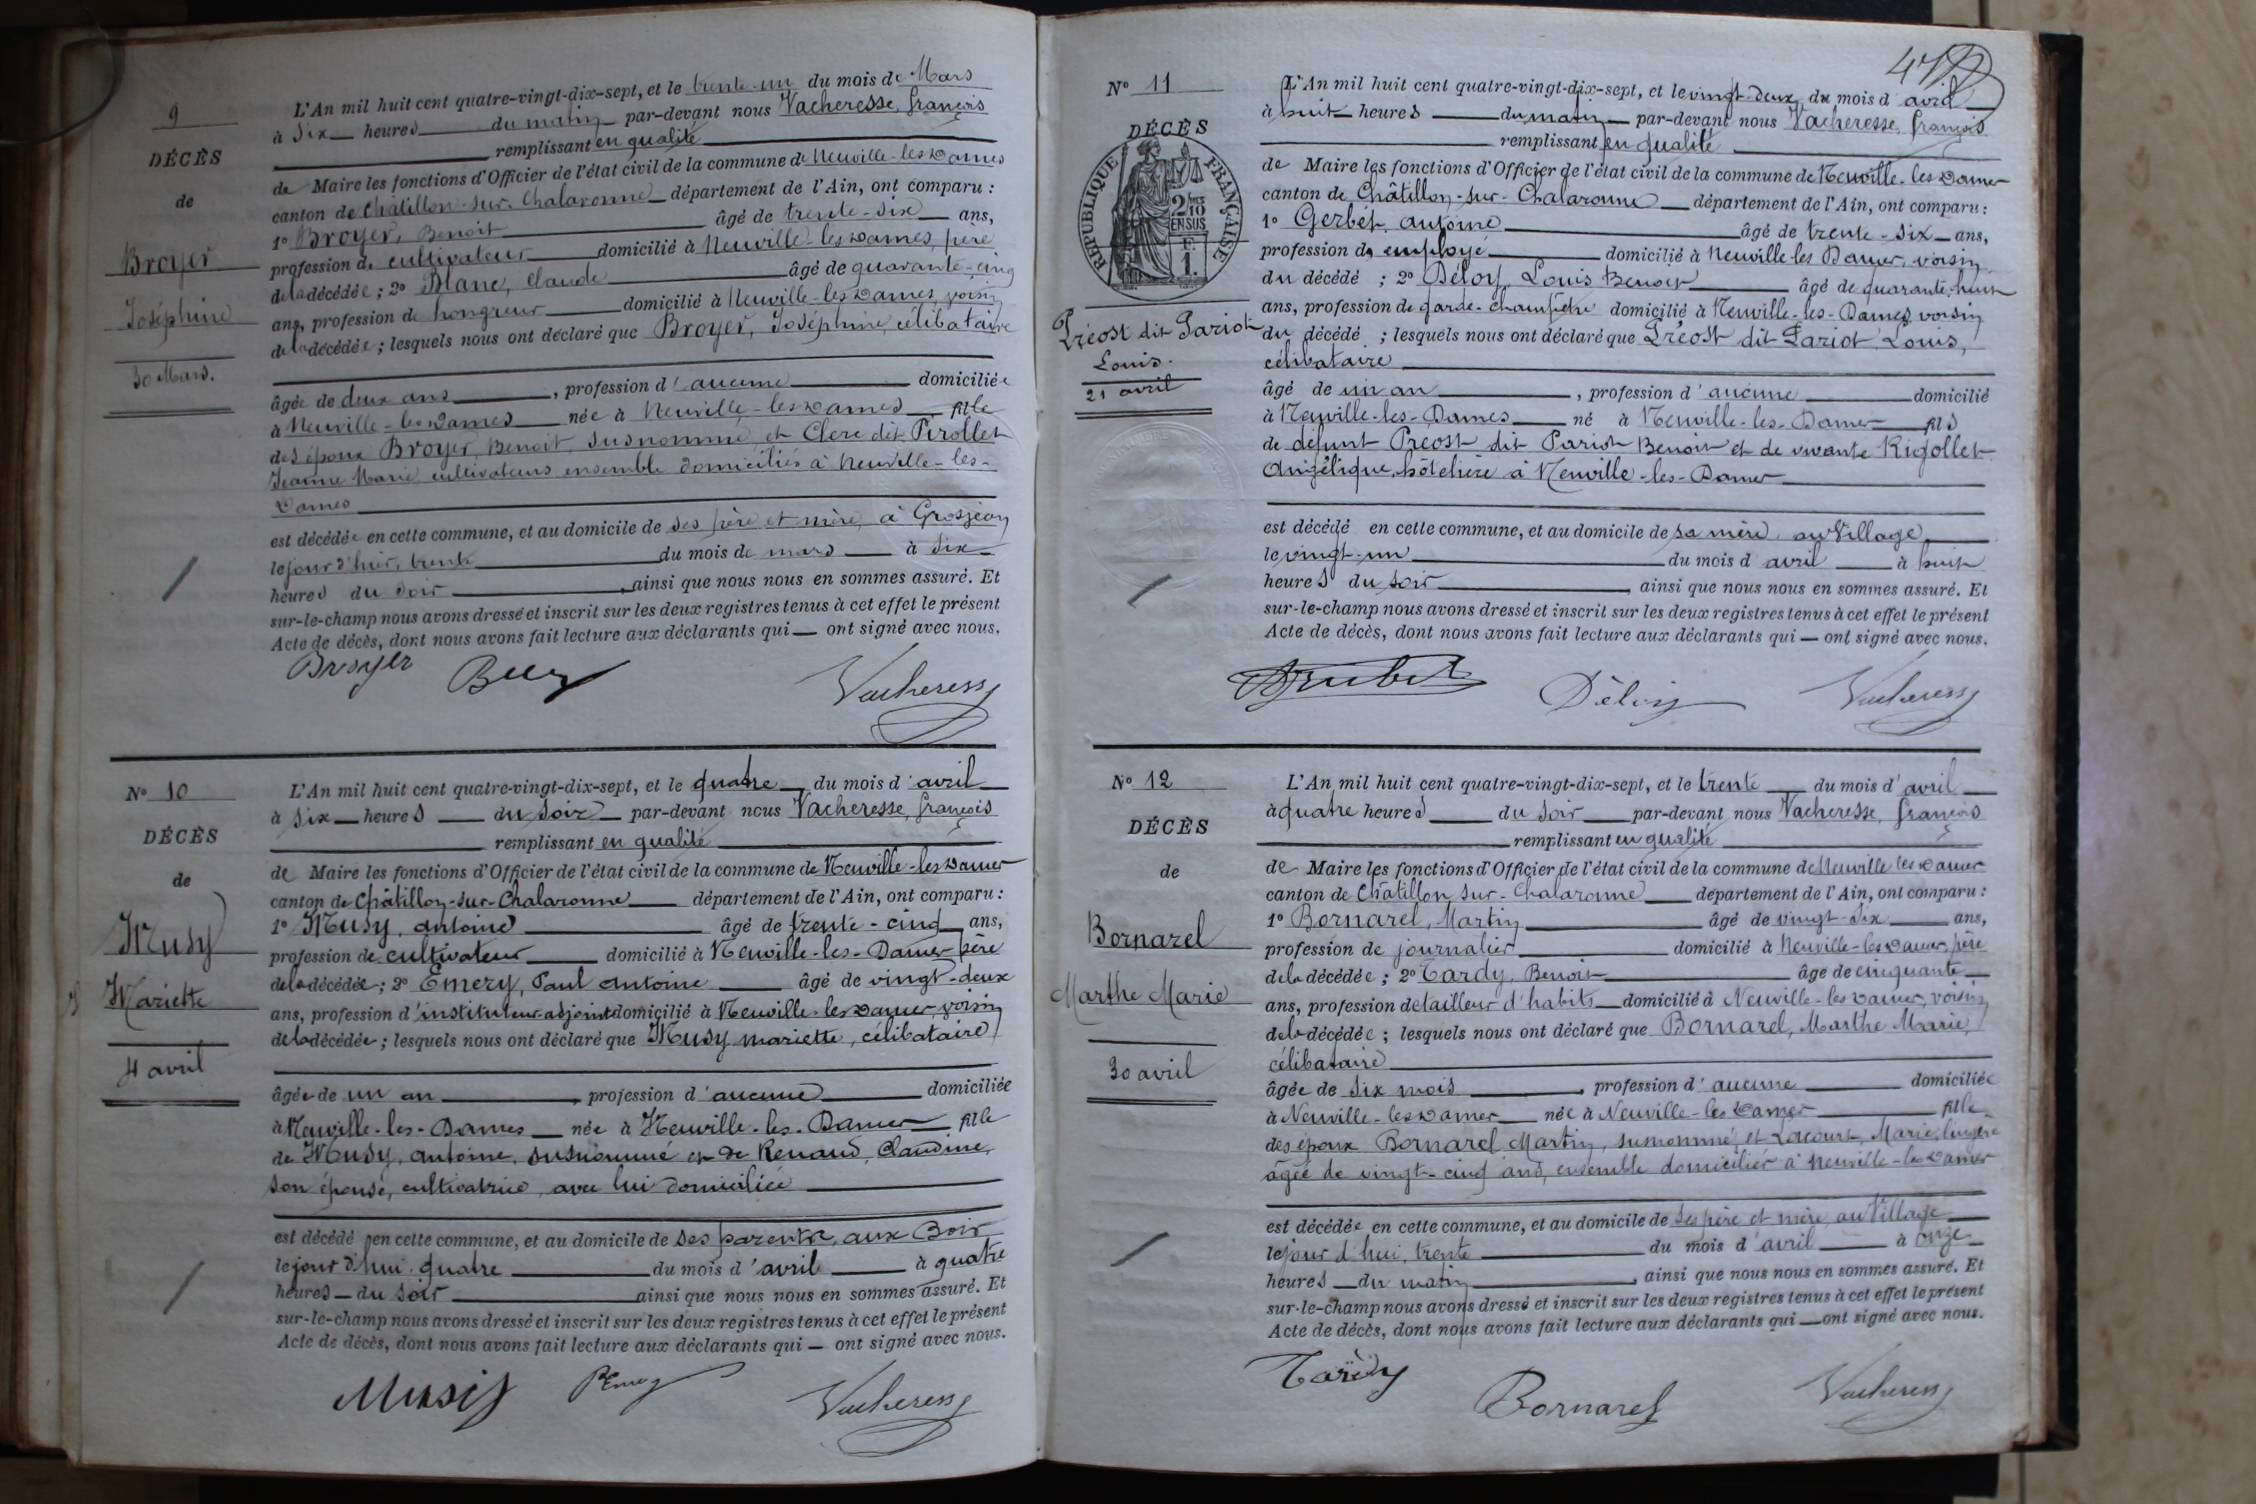 9
DÉCÈS
de
Broyer
Joséphine
30 Mars.
L'An mil huit cent quatre-vingt-dix-sept, et le trente-un du mois de Mars
à six heures du matin par-devant nous Vacheresse, françois
remplissant en qualité
de Maire les fonctions d'Officier de l'état civil de la commune de Neuville-les-Dames
canton de Châtillon-sur-Chalaronne département de l'Ain, ont comparu :
1º Broyer, Benoit âgé de trente-six ans,
profession de cultivateur domicilié à Neuville-les-Dames, père
de la décédée ; 2º Blanc, Claude âgé de quarante-cinq
ans, profession de hongreur domicilié à Neuville-les-Dames, voisin
de la décédée ; lesquels nous ont déclaré que Broyer, Joséphine, célibataire
âgée de deux ans, profession d'aucune domiciliée
à Neuville-les-Dames née à Neuville-les-Dames fille
des époux Broyer, Benoit, susnommé et Clerc dit Pirollet
Jeanne Marie cultivateurs ensemble domiciliés à Neuville-les-
Dames
est décédée en cette commune, et au domicile de ses père et mère, à Grosjean
le jour d'hier, trente du mois de mars à six
heures du soir, ainsi que nous nous en sommes assuré. Et
sur-le-champ nous avons dressé et inscrit sur les deux registres tenus à cet effet le présent
Acte de décès, dont nous avons fait lecture aux déclarants qui — ont signé avec nous.
Broyer Vacheresse
Nº 10
DÉCÈS
de
Musy
Mariette
4 avril
L'An mil huit cent quatre-vingt-dix-sept, et le quatre du mois d'avril
à six heures du soir par-devant nous Vacheresse, françois
remplissant en qualité
de Maire les fonctions d'Officier de l'état civil de la commune de Neuville-les-Dames
canton de Châtillon-sur-Chalaronne département de l'Ain, ont comparu :
1º Musy, antoine âgé de trente-cinq ans,
profession de cultivateur domicilié à Neuville-les-Dames père
de la décédée ; 2º Emery, Paul antoine âgé de vingt-deux
ans, profession d'instituteur-adjoint domicilié à Neuville-les-Dames, voisin
de la décédée ; lesquels nous ont déclaré que Musy mariette, célibataire
âgée de un an, profession d'aucune domiciliée
à Neuville-les-Dames née à Neuville-les-Dames fille
de Musy, antoine, susnommé et de Renaud, Claudine,
son épouse, cultivatrice, avec lui domiciliée
est décédé en cette commune, et au domicile de ses parents, aux Bois
le jour d'hui quatre du mois d'avril à quatre
heures du soir ainsi que nous nous en sommes assuré. Et
sur-le-champ nous avons dressé et inscrit sur les deux registres tenus à cet effet le présent
Acte de décès, dont nous avons fait lecture aux déclarants qui — ont signé avec nous.
Musis PEmery Vacheresse
Nº 11
DÉCÈS
RÉPUBLIQUE FRANÇAISE
2/10 EN SUS
F. 1.
Préost dit Pariot
Louis.
21 avril
L'An mil huit cent quatre-vingt-dix-sept, et le vingt-deux du mois d'avril
à huit heures du matin par-devant nous Vacheresse, françois
remplissant en qualité
de Maire les fonctions d'Officier de l'état civil de la commune de Neuville-les-Dames
canton de Châtillon-sur-Chalaronne département de l'Ain, ont comparu :
1º Gerbet, antoine âgé de trente-six ans,
profession de employé domicilié à Neuville les Dames, voisin
du décédé ; 2º Déloy, Louis Benoit âgé de quarante-huit
ans, profession de garde-champêtre domicilié à Neuville-les-Dames, voisin
du décédé ; lesquels nous ont déclaré que Préost dit Pariot, Louis,
célibataire
âgé de un an, profession d'aucune domicilié
à Neuville-les-Dames né à Neuville-les-Dames fils
de défunt Préost dit Pariot Benoit et de vivante Rigollet
Angélique, hôtelière à Neuville-les-Dames
est décédé en cette commune, et au domicile de sa mère, au Village
le vingt-un du mois d'avril à huit
heures du soir, ainsi que nous nous en sommes assuré. Et
sur-le-champ nous avons dressé et inscrit sur les deux registres tenus à cet effet le présent
Acte de décès, dont nous avons fait lecture aux déclarants qui — ont signé avec nous.
Déloy Vacheresse
Nº 12
DÉCÈS
de
Bornarel
Marthe Marie
30 avril
L'An mil huit cent quatre-vingt-dix-sept, et le trente du mois d'avril
à quatre heures du soir par-devant nous Vacheresse, françois
remplissant en qualité
de Maire les fonctions d'Officier de l'état civil de la commune de Neuville les Dames
canton de Châtillon sur-Chalaronne département de l'Ain, ont comparu :
1º Bornarel, Martin âgé de vingt-six ans,
profession de journalier domicilié à Neuville-les-Dames, père
de la décédée ; 2º Tardy, Benoit âgé de cinquante
ans, profession de tailleur d'habits domicilié à Neuville-les-Dames, voisin
de la décédée ; lesquels nous ont déclaré que Bornarel, Marthe Marie,
célibataire
âgée de six mois, profession d'aucune domiciliée
à Neuville-les-Dames née à Neuville-les-Dames fille
des époux Bornarel Martin, susnommé, et Lacourt, Marie, lingère
âgée de vingt-cinq ans, ensemble domiciliés à Neuville-les-Dames
est décédée en cette commune, et au domicile de ses père et mère, au Village
le jour d'hui, trente du mois d'avril à onze
heures du matin, ainsi que nous nous en sommes assuré. Et
sur-le-champ nous avons dressé et inscrit sur les deux registres tenus à cet effet le présent
Acte de décès, dont nous avons fait lecture aux déclarants qui — ont signé avec nous.
Tardy Bornarel Vacheresse